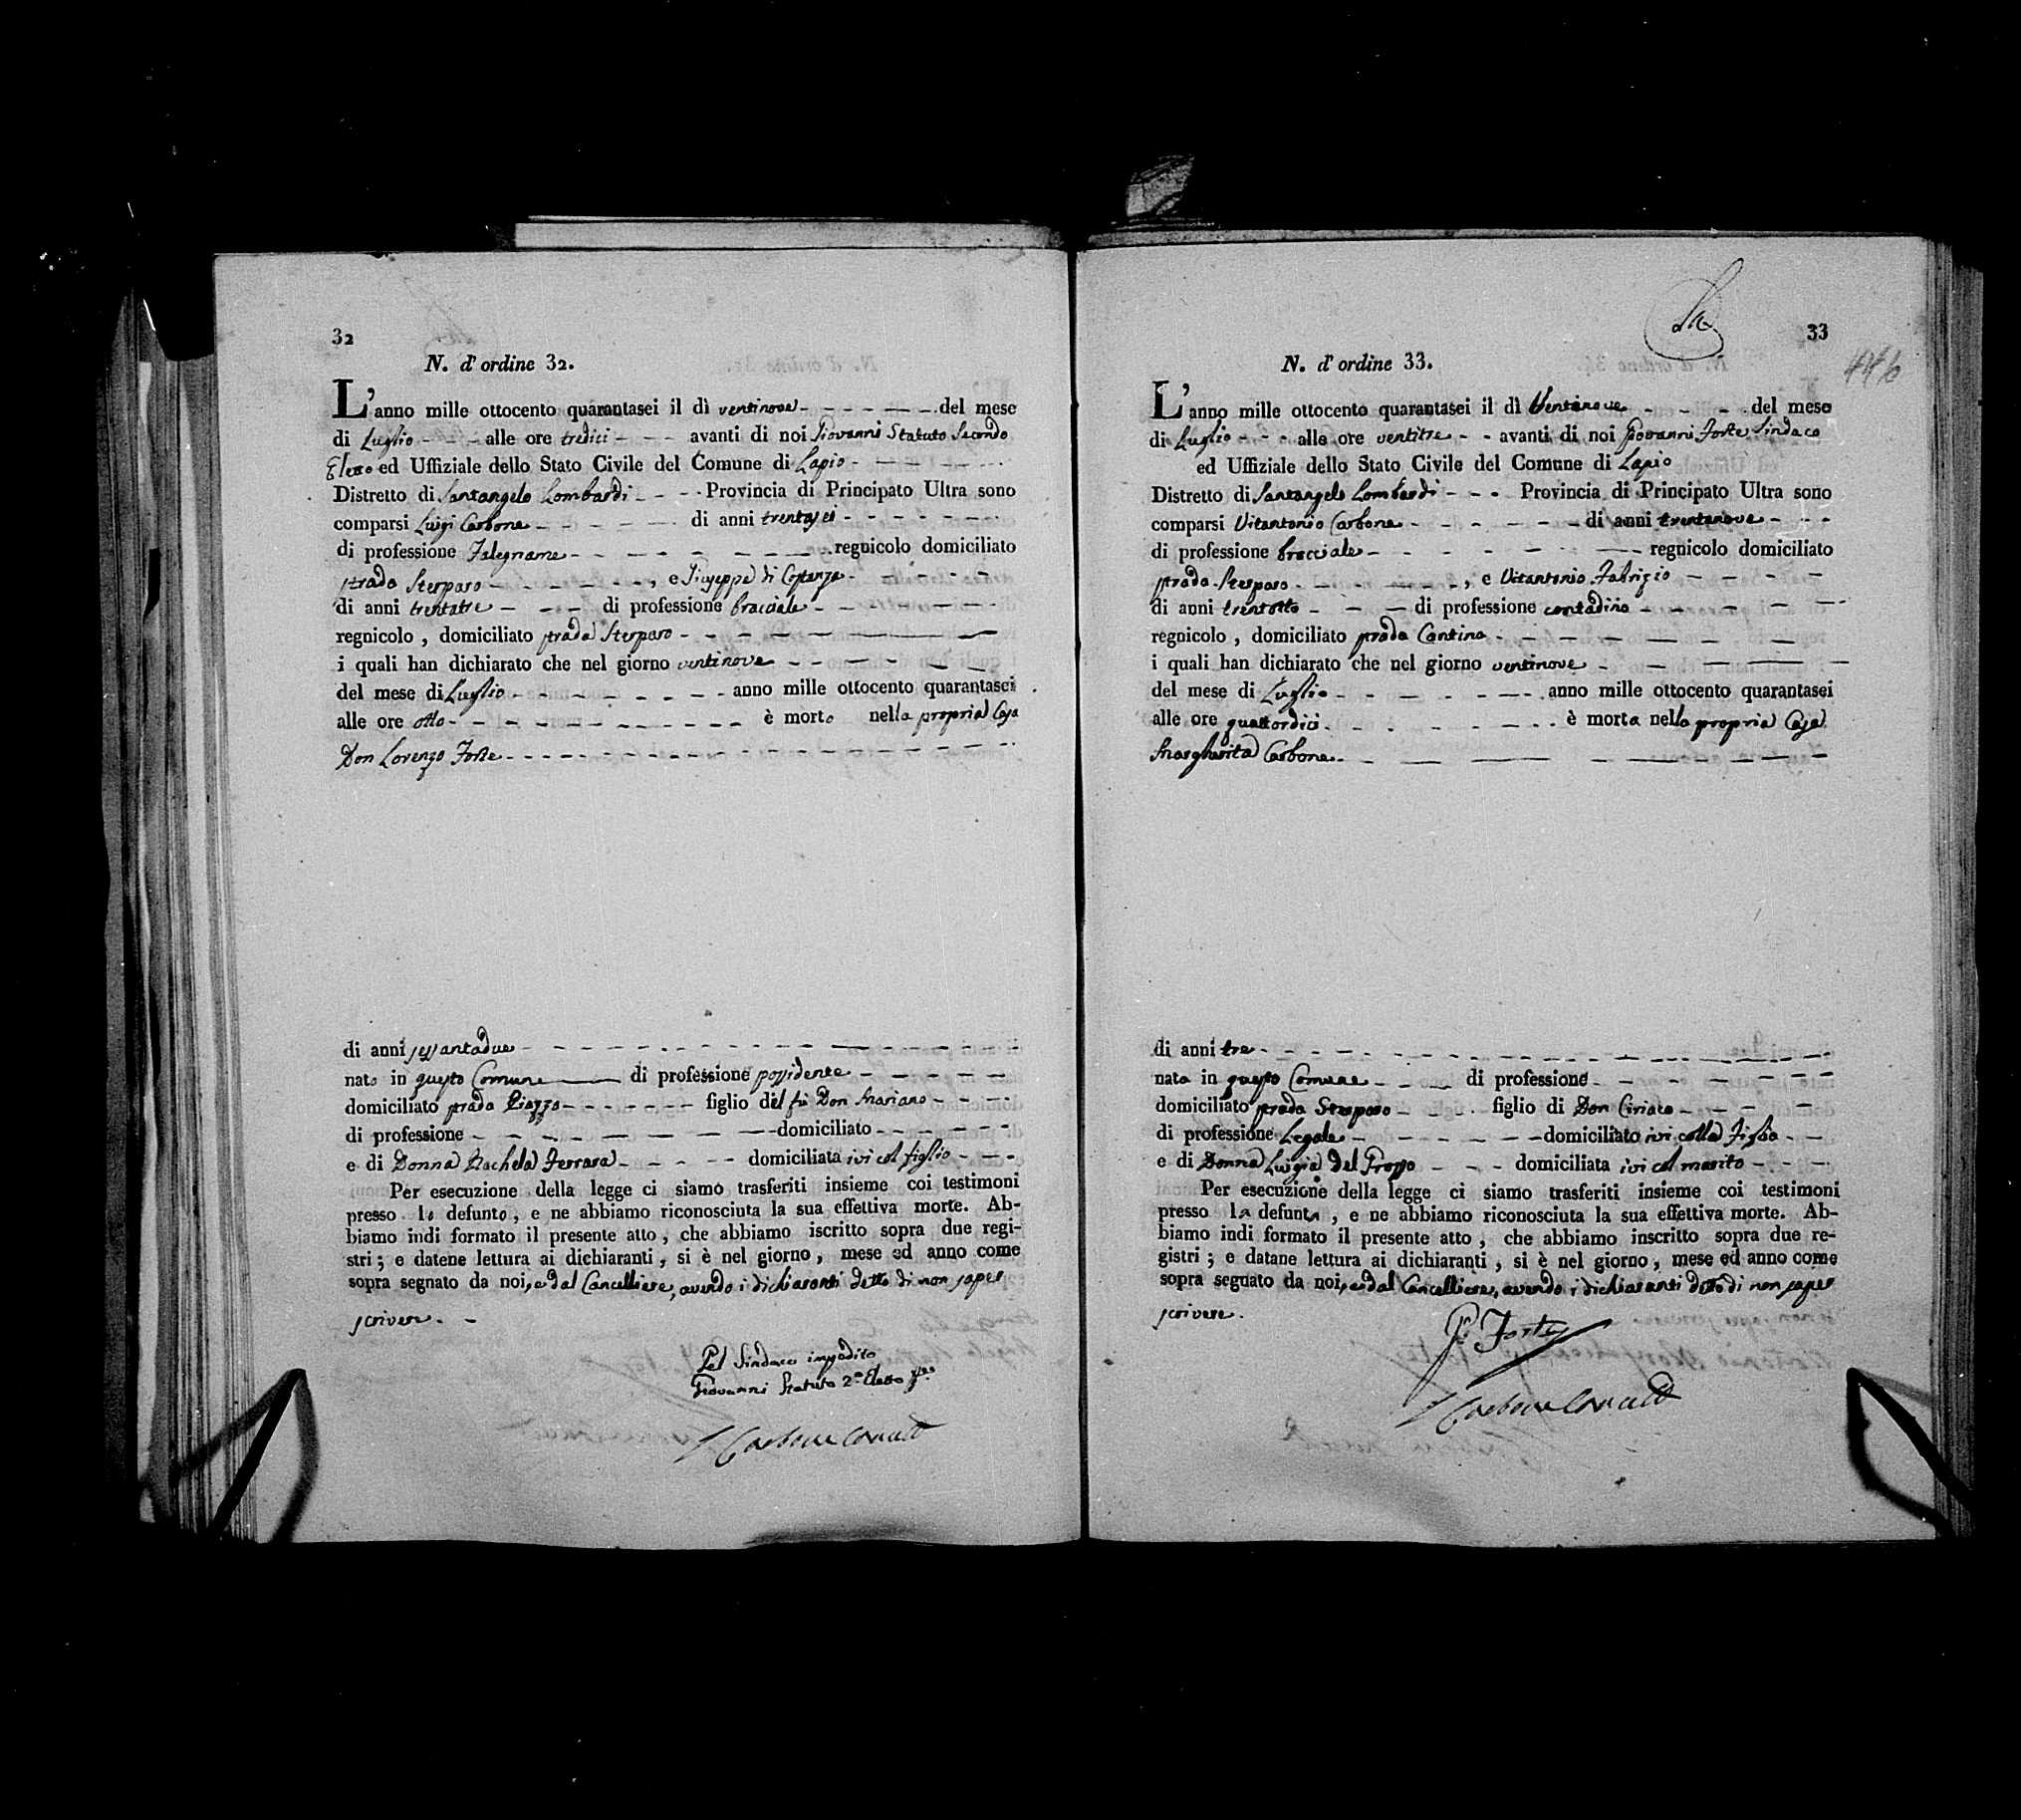 32
N. d'ordine 32.
L'anno mille ottocento quarantasei il dì ventinove del mese
di Luglio alle ore tredici avanti di noi Giovanni Statuto Secondo
Eletto ed Uffiziale dello Stato Civile del Comune di Lapio
Distretto di Santangelo Lombardi Provincia di Principato Ultra sono
comparsi Luigi Carbone di anni trentasei
di professione Falegname regnicolo domiciliato
strada Sterparo, e Giuseppe di Costanzo
di anni trentatre di professione bracciale
regnicolo, domiciliato strada Sterparo
i quali han dichiarato che nel giorno ventinove
del mese di Luglio anno mille ottocento quarantasei
alle ore otto è morto nella propria Casa
Don Lorenzo Forte
di anni sessantadue
nato in questo Comune di professione possidente
domiciliato strada Piazza figlio del fù Don Mariano
di professione domiciliato
e di Donna Rachela Ferrara domiciliata ivi col figlio
Per esecuzione della legge ci siamo trasferiti insieme coi testimoni
presso lo defunto, e ne abbiamo riconosciuta la sua effettiva morte. Ab-
biamo indi formato il presente atto, che abbiamo iscritto sopra due regi-
stri; e datene lettura ai dichiaranti, si è nel giorno, mese ed anno come
sopra segnato da noi, e dal Cancelliere, avendo i dichiaranti detto di non saper
scrivere.
Pel Sindaco impedito
Giovanni Statuto 2º Eletto
Carbone
33
446
N. d'ordine 33.
L'anno mille ottocento quarantasei il dì Ventinove del mese
di Luglio alle ore ventitre avanti di noi Giovanni Forte Sindaco
ed Uffiziale dello Stato Civile del Comune di Lapio
Distretto di Santangelo Lombardi Provincia di Principato Ultra sono
comparsi Vitantonio Carbone di anni trentanove
di professione bracciale regnicolo domiciliato
strada Sterparo, e Vitantonio Fabrizio
di anni trentotto di professione contadino
regnicolo, domiciliato strada Cantina
i quali han dichiarato che nel giorno ventinove
del mese di Luglio anno mille ottocento quarantasei
alle ore quattordici è morta nella propria Casa
Margherita Carbone
di anni tre
nata in questo Comune di professione
domiciliato strada Sterparo figlio di Don Ciriaco
di professione Legale domiciliato ivi colla Figlia
e di Donna Luigia del Grosso domiciliata ivi col marito
Per esecuzione della legge ci siamo trasferiti insieme coi testimoni
presso la defunta, e ne abbiamo riconosciuta la sua effettiva morte. Ab-
biamo indi formato il presente atto, che abbiamo inscritto sopra due re-
gistri; e datane lettura ai dichiaranti, si è nel giorno, mese ed anno come
sopra segnato da noi, e dal Cancelliere, avendo i dichiaranti detto di non saper
scrivere.
Forte
Carbone